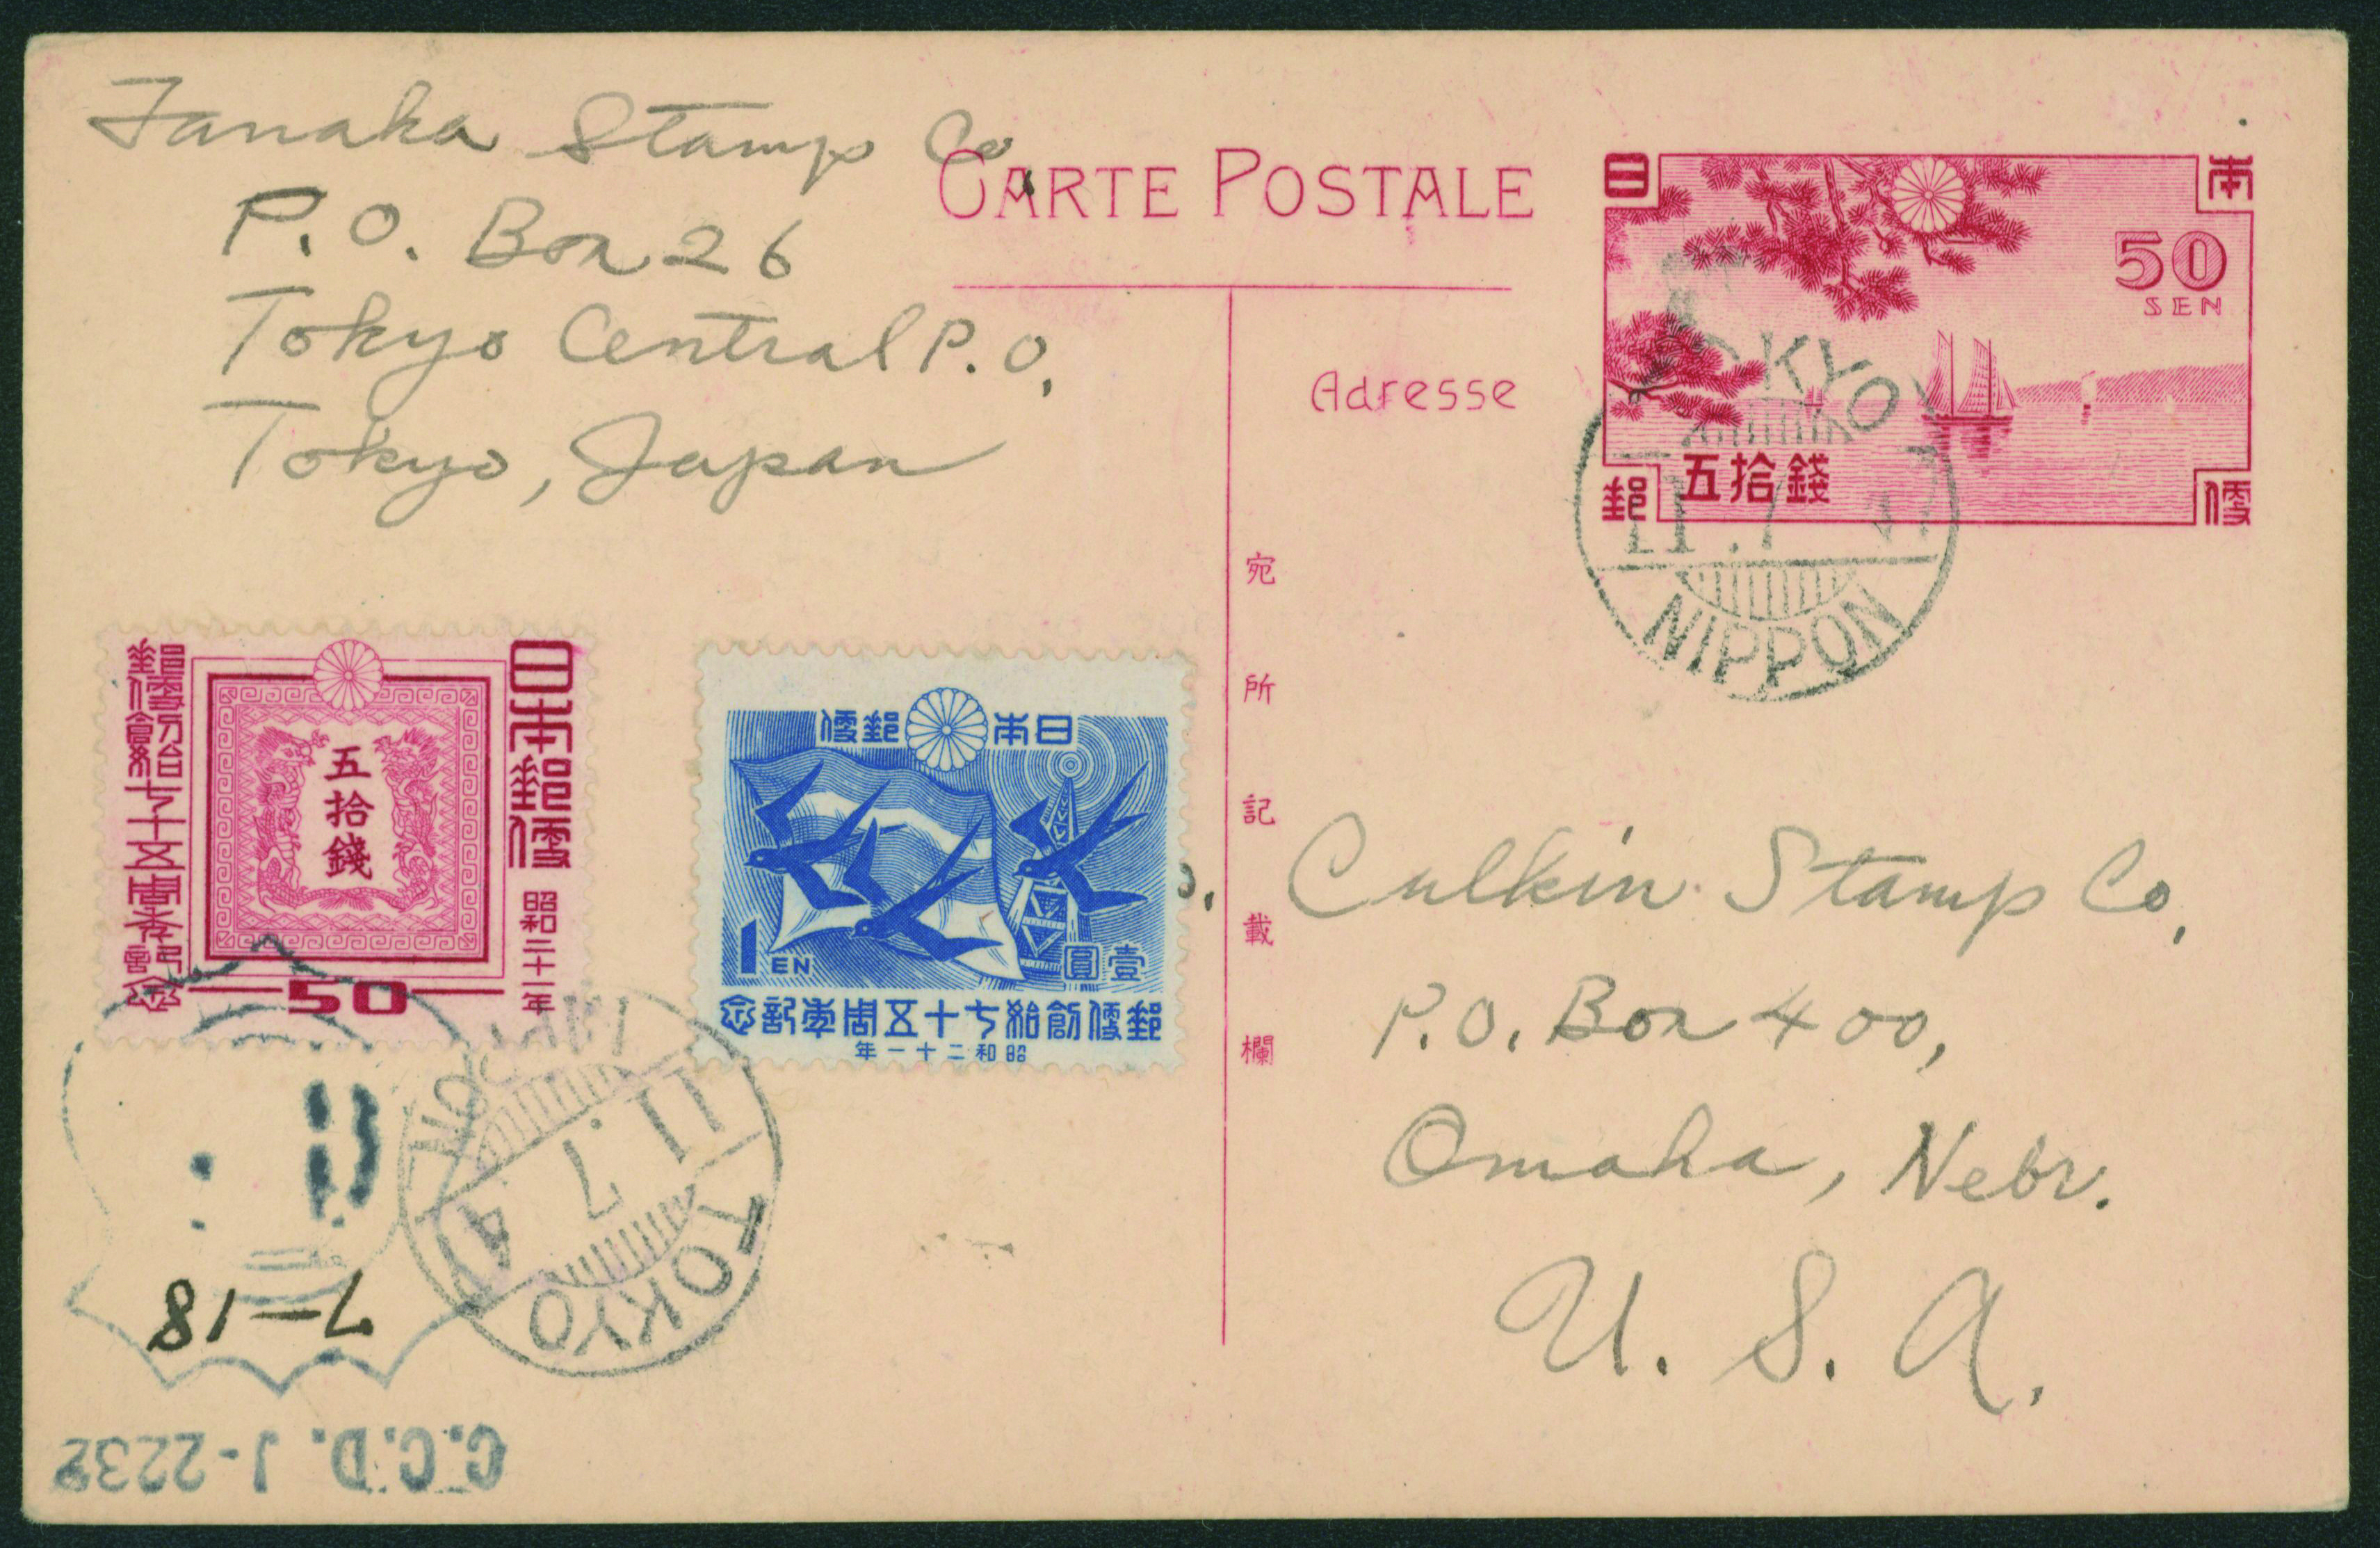 Tanaka Stamp Co
P.O. Box 26
Tokyo Central P.O.
Tokyo, Japan
CARTE POSTALE
Adresse
日本
50
SEN
五拾錢
郵便
TOKYO
11.7 47
NIPPON
宛所記載欄
日本郵便
昭和二十一年
五拾錢
50
郵便創始七十五周年記念
日本郵便
1EN
壹圓
郵便創始七十五周年記念
昭和二十一年
Culkin Stamp Co,
P.O. Box 400,
Omaha, Nebr.
U. S. A.
11.7
TOKYO
7-18
C.C.D. J-2232